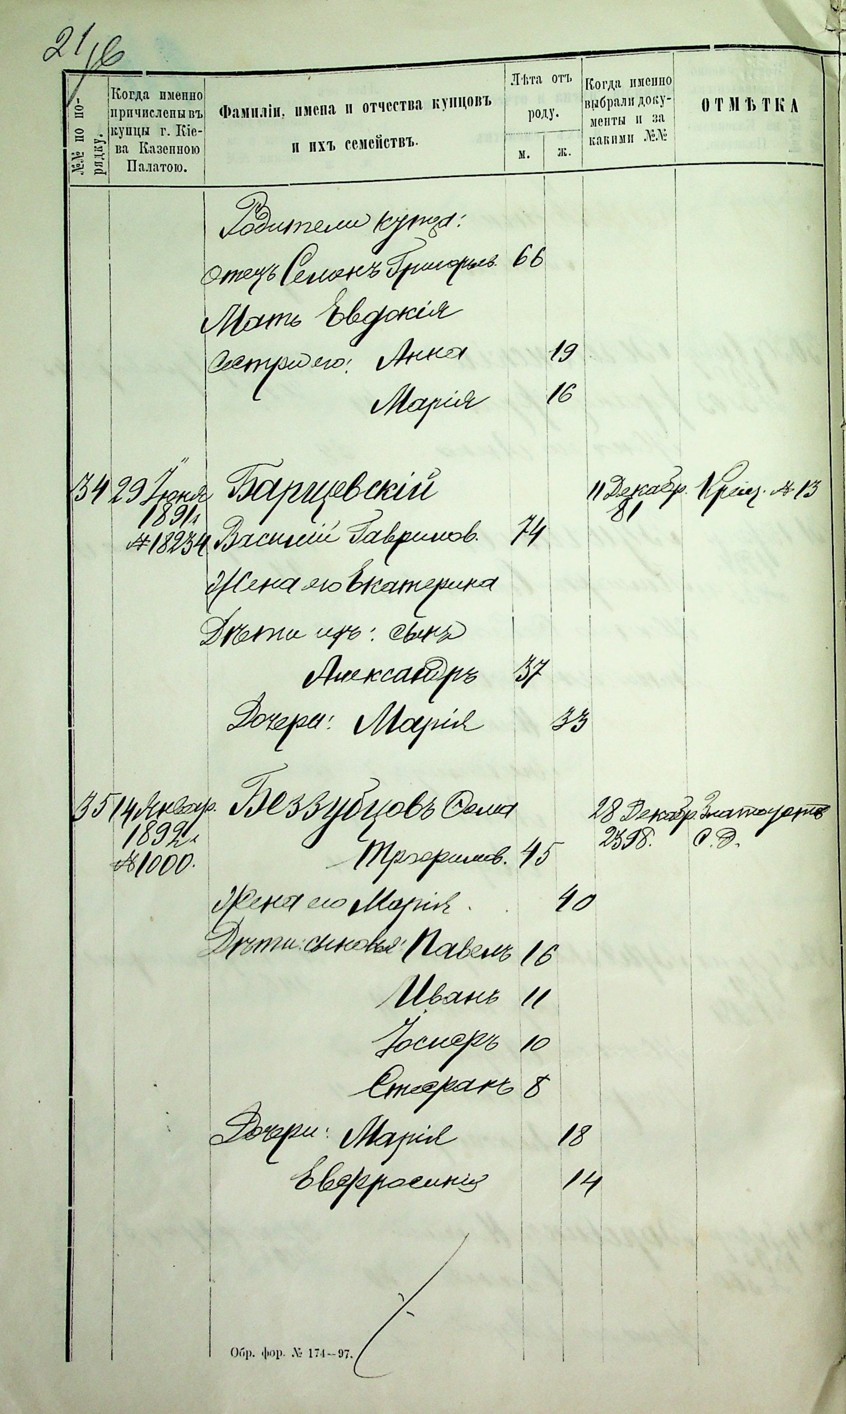 21/16
№№ по порядку.
Когда именно
причислены въ
купцы г. Кіе-
ва Казенною
Палатою.
Фамиліи, имена и отчества купцовъ
и ихъ семействъ.
Лѣта отъ
роду.
м. ж.
Когда именно
выбрали доку-
менты и за
какими №№
ОТМѢТКА
Родители купца:
отецъ Семенъ Григорьев. 66
Мать Евдокія
сестры его: Анна 19
Марія 16
34 29 Іюня Барщевскій 11 Декабр. № 13
1891 г. 81
№ 18234 Василій Гаврилов. 74
Жена его Екатерина
Дѣти ихъ: сынъ
Александръ 37
Дочери: Марія 33
35 14 Январ. Беззубцовъ Фома 28 Декабр. Златоустъ
1892 г. 2398. С. Д.
№ 1000. 45
Жена его Марія 40
Дѣти: сыновья: Павелъ 16
Иванъ 11
Іосифъ 10
Стефанъ 8
Дочери: Марія 18
Евфросинія 14
Обр. фор. № 174—97.